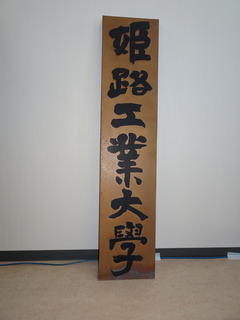 姫路工業大學